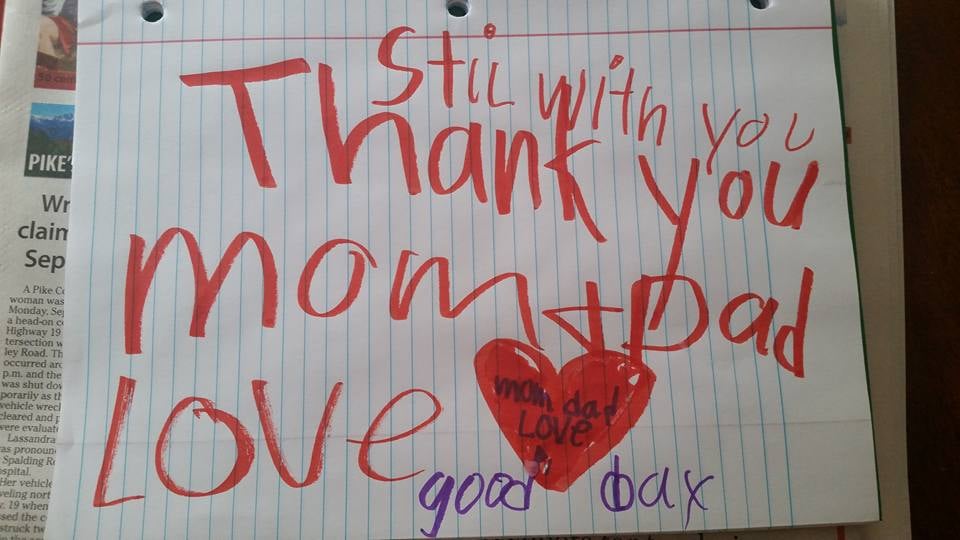 Stil with you
Thank you
mom + Dad
Love
mom dad
Love
good dax
50 cent
PIKE'S
Wr
claim
Sep
A Pike Co
woman was
Monday. Sep
a head-on c
Highway 19
tersection w
ley Road. Th
occurred aro
p.m. and the
was shut dow
porarily as th
vehicle wreck
cleared and p
were evaluat
Lassandra
as pronoun
Spalding Re
ospital.
Her vehicle
veling nort
y. 19 when
sed the c
struck tw